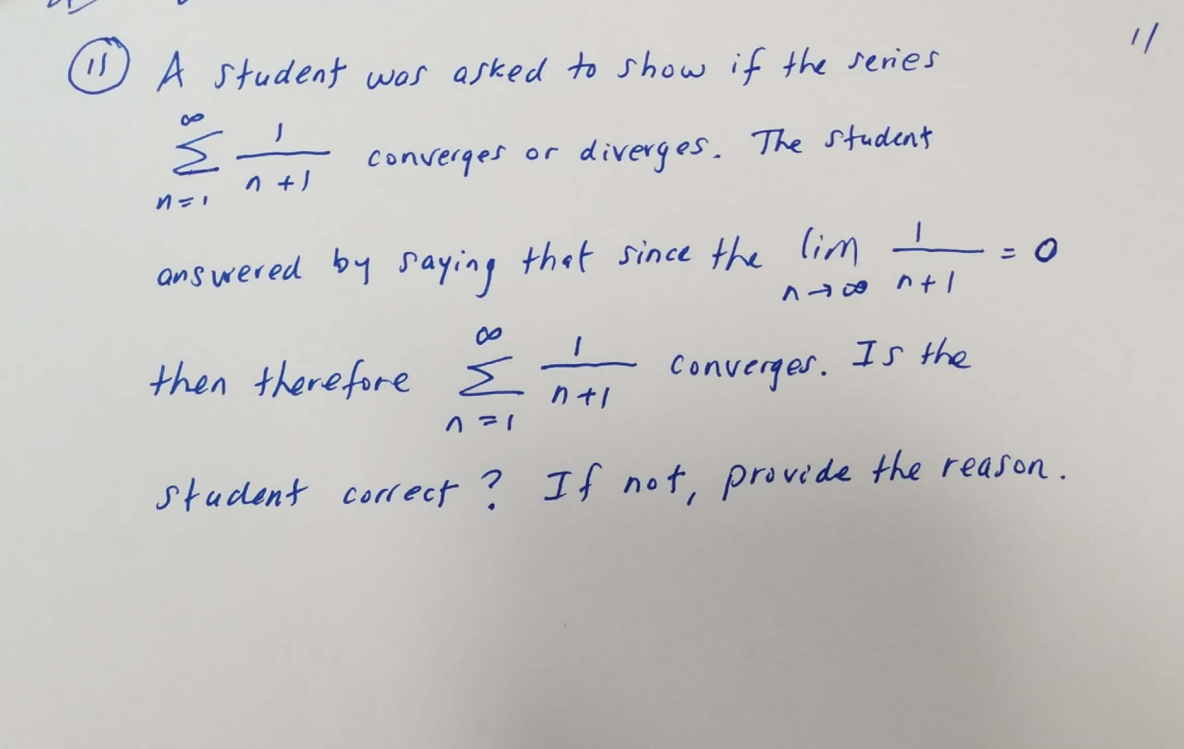 11
(11) A student was asked to show if the series
∞
∑ 1/(n+1) converges or diverges. The student
n=1
answered by saying that since the lim 1/(n+1) = 0
n→∞
then therefore ∞∑n=1 1/(n+1) converges. Is the
student correct? If not, provide the reason.